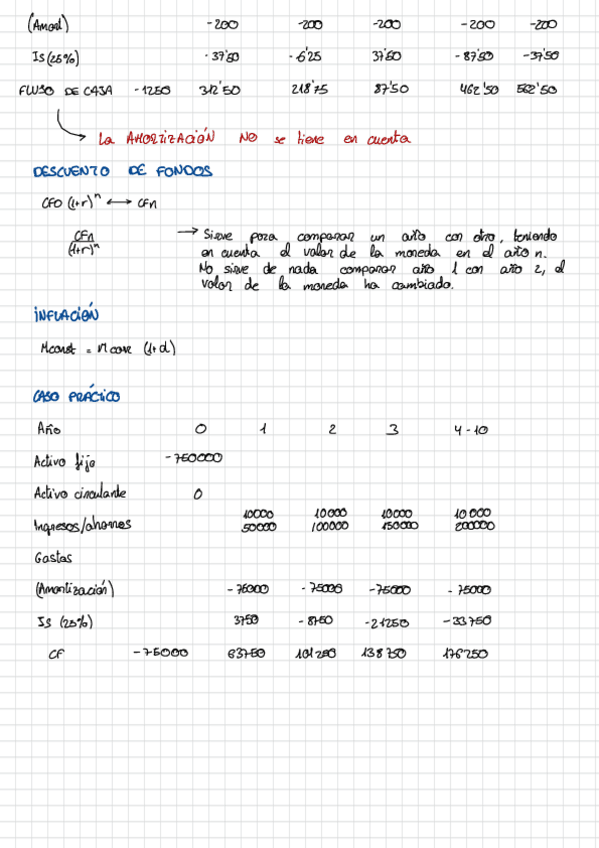 (Amort) -200 -200 -200 -200 -200
IS (25%) -37'50 -6'25 37'50 -87'50 -37'50
FLUJO DE CAJA -1250 312'50 218'75 87'50 462'50 562'50
La AMORTIZACIÓN NO se tiene en cuenta
DESCUENTO DE FONDOS
CF0 (1+r)^n ↔ CFn
CFn/(1+r)^n → Sirve para comparar un año con otro, teniendo
en cuenta el valor de la moneda en el año n.
No sirve de nada comparar año 1 con año 2, el
valor de la moneda ha cambiado.
INFLACIÓN
Mconst = Mcorr (1+d)
CASO PRÁCTICO
Año 0 1 2 3 4-10
Activo fijo -750000
Activo circulante 0
10000 10000 10000 10000
Ingresos/ahorros 50000 100000 150000 200000
Gastos
(Amortización) -75000 -75000 -75000 -75000
IS (25%) 3750 -8750 -21250 -33750
CF -75000 63750 101250 138750 176250